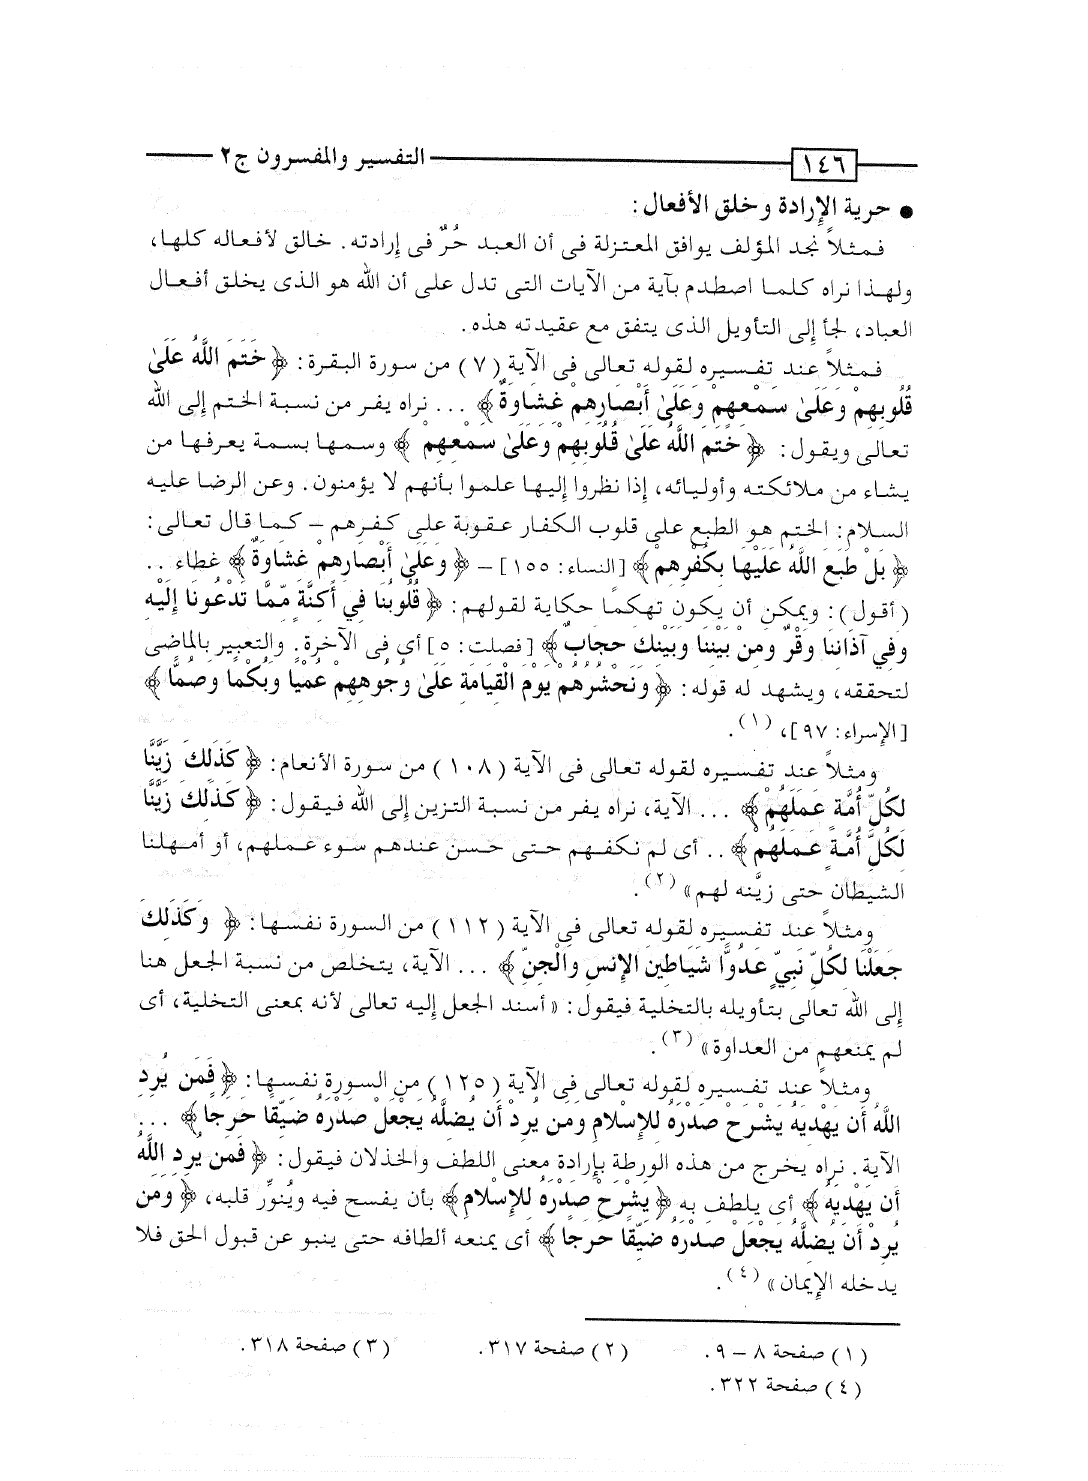 ١٤٦ التفسير والمفسرون ج٢
● حرية الإرادة وخلق الأفعال:
فمثلاً نجد المؤلف يوافق المعتزلة فى أن العبد حُرٌ فى إرادته. خالق لأفعاله كلها،
ولهذا نراه كلما اصطدم بآية من الآيات التى تدل على أن الله هو الذى يخلق أفعال
العباد، لجأ إلى التأويل الذى يتفق مع عقيدته هذه.
فمثلاً عند تفسيره لقوله تعالى فى الآية (٧) من سورة البقرة: ﴿خَتَمَ اللَّهُ عَلَىٰ
قُلُوبِهِمْ وَعَلَىٰ سَمْعِهِمْ وَعَلَىٰ أَبْصَارِهِمْ غِشَاوَةٌ﴾ ... نراه يفر من نسبة الختم إلى الله
تعالى ويقول: ﴿خَتَمَ اللَّهُ عَلَىٰ قُلُوبِهِمْ وَعَلَىٰ سَمْعِهِمْ﴾ وسمها بسمة يعرفها من
يشاء من ملائكته وأوليائه، إذا نظروا إليها علموا بأنهم لا يؤمنون. وعن الرضا عليه
السلام: الختم هو الطبع على قلوب الكفار عقوبة على كفرهم – كما قال تعالى:
﴿بَلْ طَبَعَ اللَّهُ عَلَيْهَا بِكُفْرِهِمْ﴾ [النساء: ١٥٥] – ﴿وَعَلَىٰ أَبْصَارِهِمْ غِشَاوَةٌ﴾ غطاء ..
(أقول): ويمكن أن يكون تهكمًا حكاية لقولهم: ﴿قُلُوبُنَا فِي أَكِنَّةٍ مِّمَّا تَدْعُونَا إِلَيْهِ
وَفِي آذَانِنَا وَقْرٌ وَمِنْ بَيْنِنَا وَبَيْنِكَ حِجَابٌ﴾ [فصلت: ٥] أي فى الآخرة. والتعبير بالماضى
لتحققه، ويشهد له قوله: ﴿وَنَحْشُرُهُمْ يَوْمَ الْقِيَامَةِ عَلَىٰ وُجُوهِهِمْ عُمْيًا وَبُكْمًا وَصُمًّا﴾
[الإسراء: ٩٧]، (١).
ومثلاً عند تفسيره لقوله تعالى فى الآية (١٠٨) من سورة الأنعام: ﴿كَذَلِكَ زَيَّنَّا
لِكُلِّ أُمَّةٍ عَمَلَهُمْ﴾ ... الآية، نراه يفر من نسبة التزين إلى الله فيقول: ﴿كَذَلِكَ زَيَّنَّا
لِكُلِّ أُمَّةٍ عَمَلَهُمْ﴾ .. أى لم نكفهم حتى حسن عندهم سوء عملهم، أو أمهلنا
الشيطان حتى زيَّنه لهم» (٢).
ومثلاً عند تفسيره لقوله تعالى فى الآية (١١٢) من السورة نفسها: ﴿وَكَذَلِكَ
جَعَلْنَا لِكُلِّ نَبِيٍّ عَدُوًّا شَيَاطِينَ الإِنسِ وَالْجِنِّ﴾ ... الآية، يتخلص من نسبة الجعل هنا
إلى الله تعالى بتأويله بالتخلية فيقول: «أسند الجعل إليه تعالى لأنه بمعنى التخلية، أى
لم يمنعهم من العداوة» (٣).
ومثلاً عند تفسيره لقوله تعالى فى الآية (١٢٥) من السورة نفسها: ﴿فَمَن يُرِدِ
اللَّهُ أَن يَهْدِيَهُ يَشْرَحْ صَدْرَهُ لِلإِسْلامِ وَمَن يُرِدْ أَن يُضِلَّهُ يَجْعَلْ صَدْرَهُ ضَيِّقًا حَرَجًا﴾ ...
الآية. نراه يخرج من هذه الورطة بإرادة معنى اللطف والخذلان فيقول: ﴿فَمَن يُرِدِ اللَّهُ
أَن يَهْدِيَهُ﴾ أى يلطف به ﴿يَشْرَحْ صَدْرَهُ لِلإِسْلامِ﴾ بأن يفسح فيه ويُنوِّر قلبه، ﴿وَمَن
يُرِدْ أَن يُضِلَّهُ يَجْعَلْ صَدْرَهُ ضَيِّقًا حَرَجًا﴾ أى يمنعه ألطافه حتى ينبو عن قبول الحق فلا
يدخله الإيمان» (٤).
(١) صفحة ٨ – ٩. (٢) صفحة ٣١٧. (٣) صفحة ٣١٨.
(٤) صفحة ٣٢٢.